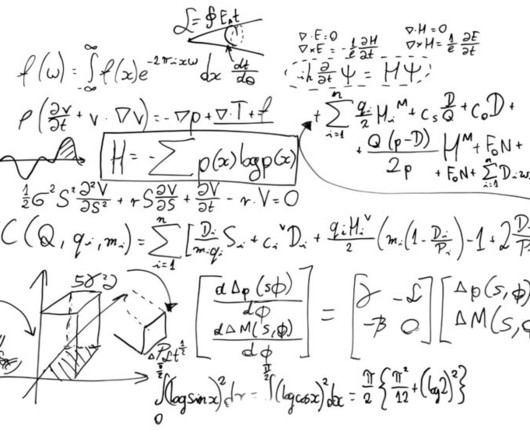 ℒ = ∮ E₀t
∇·E=0 ∇·H=0
∇×E = -1/c ∂H/∂t ∇×H = 1/c ∂E/∂t
f(ω) = ∫_{-∞}^{∞} f(x)e^{-2πixω} dx dt/dθ
iħ ∂/∂t Ψ = HΨ
ρ(∂v/∂t + v · ∇v) = -∇p + ∇·T + f
+ ∑_{i=1}^{n} q_i/2 H_i^M + C_s D/Q + C_0D +
+ Q(p-D)/2p H^M + F_0N +
+ F_0N + ∑_{i=1}^{n} D_i
H = -∑ p(x) log p(x)
1/2 σ²S² ∂²V/∂S² + rS ∂V/∂S + ∂V/∂t - r·V = 0
C(Q, q_i, m_i) = ∑_{i=1}^{n} [D_i/(m_i q_i) S_i + C_i^v D_i + q_i H_i^v/2 (m_i(1 - D_i/P_i) - 1 + 2 D_i/P_i
[dΔp(s,ϕ)/dϕ dΔM(s,ϕ)/dϕ] = [γ -ℒ -β 0] [Δp(s,ϕ) ΔM(s,ϕ)
∫_0^{π/2} (log sin x)² dx = ∫^{π/2} (log cos x)² dx = π/2 {π²/12 + (log 2)²}